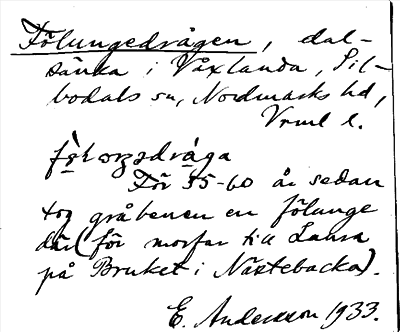 Fölungedrågen, dal-
sänka i Våxlanda, Sil-
bodals sn, Nordmarks hd,
Vrml l.
För 55-60 år sedan
tog gråbenen en fölunge
där (för morfar till Laura
på Bruket i Nästebacka).
E. Andersson 1933.